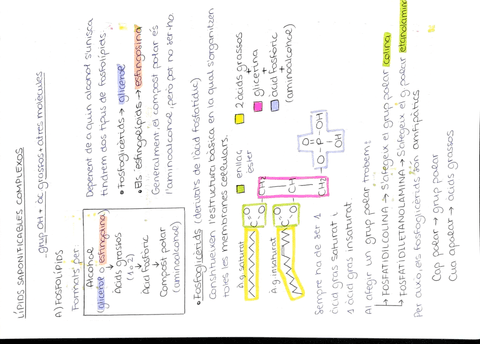 LÍPIDS SAPONIFICABLES COMPLEXOS
- grup OH + àc grassos + altres molècules
A) FOSFOLÍPIDS
Formats per
Alcohol
(glicerol o esfingosina)
↓
Àcids grassos
(1 o 2)
↓
Àcid fosfòric
↓
Compost polar
(aminoalcohol)
Depenent de a quin alcohol s'unisca
tindrem dos tipus de fosfolípids.
• Fosfoglicèrids → glicerol
• Els esfingolípids → esfingosina
Generalment, el compost polar és
l'aminoalcohol, però pot no ser-ho
• Fosfoglicèrids (derivats de l'àcid fosfatídic)
Constitueixen l'estructura bàsica en la qual s'organitzen
totes les membranes cel·lulars.
A g saturat
A g insaturat
enllaç
ester
2 àcids grassos
+
glicerina
+
àcid fosfòric
+
(aminoalcohol)
C - O - CH2
O
C - O - CH
O
CH2 - O - P - OH
O
OH
Sempre ha de ser 1
àcid gras saturat i
1 àcid gras insaturat
Al afegir un grup polar, trobem:
→ FOSFATIDILCOLINA → S'afegeix el grup polar colina
→ FOSFATIDILETANOLAMINA → S'afegeix el g polar etanolamina
Per això, els fosfoglicèrids son amfipàtics
Cap polar → grup polar
Cua apolar → àcids grassos